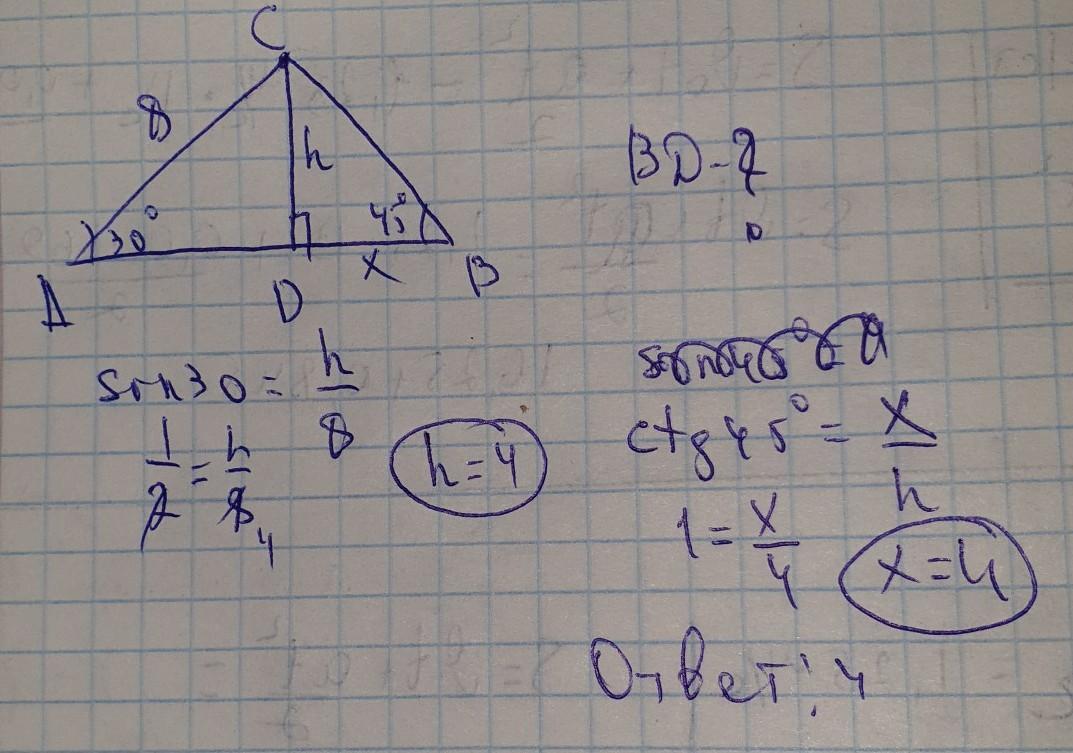 C
8
h
30°
45°
A
D
x
B
BD-?
sin30 = h/8
1/2 = h/8 4
h=4
ctg45° = x/h
1 = x/4
x=4
Ответ: 4